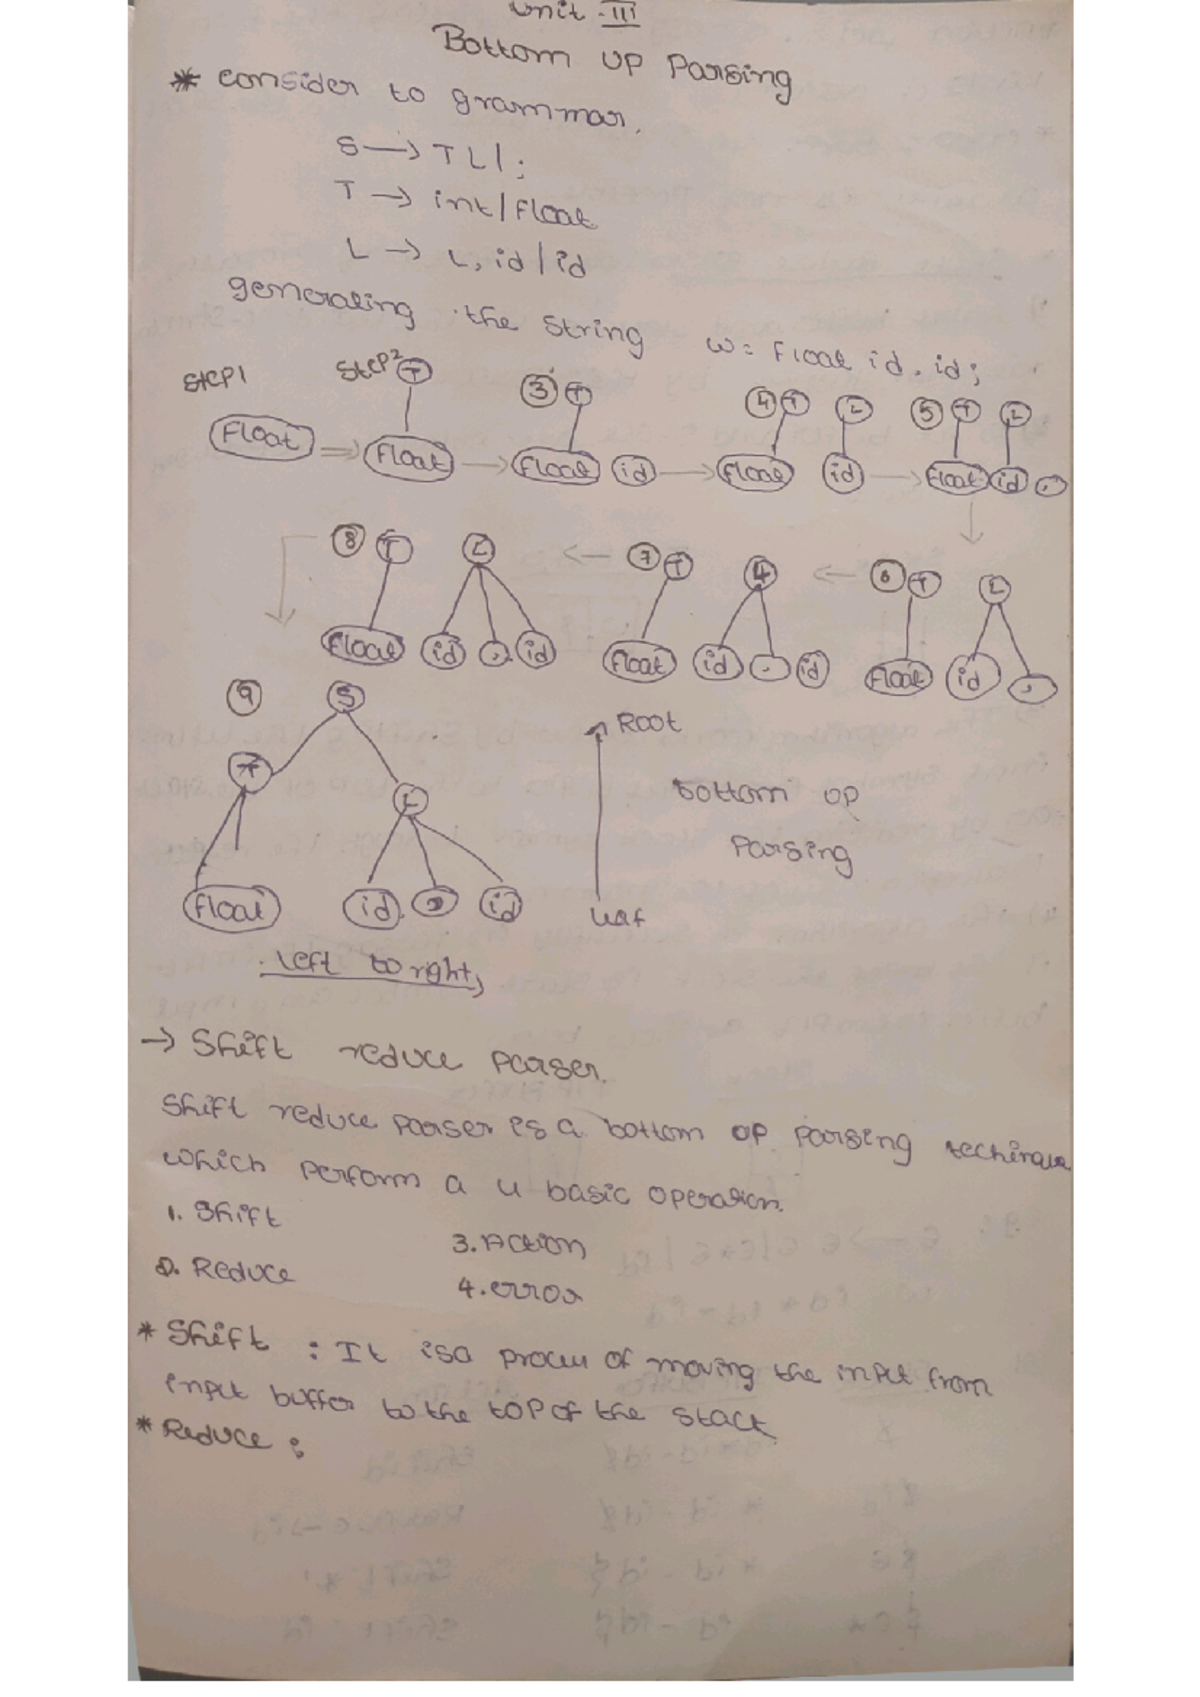 Unit - III
Bottom UP Parsing
* consider to grammar,
S → T L | ;
T → int / Float
L → L, id / id
generating the string w = Float id, id;
Step1 Step2 T ③ T ④ T L ⑤ T L
Float ⇒ Float → Float id → Float id → Float id ,
⑧ T L ← ⑦ T L ← ⑥ T L
Float id , id Float id , id Float id ,
⑨ S
Root
T L
bottom up
Parsing
Float id , id
leaf
left to right,
→ Shift reduce Parser.
Shift reduce Parser is a bottom up parsing
which perform a 4 basic operation.
1. Shift 3. Action
2. Reduce 4. error
* Shift : It is a proces of moving the input from
input buffer to the top of the stack
* Reduce :